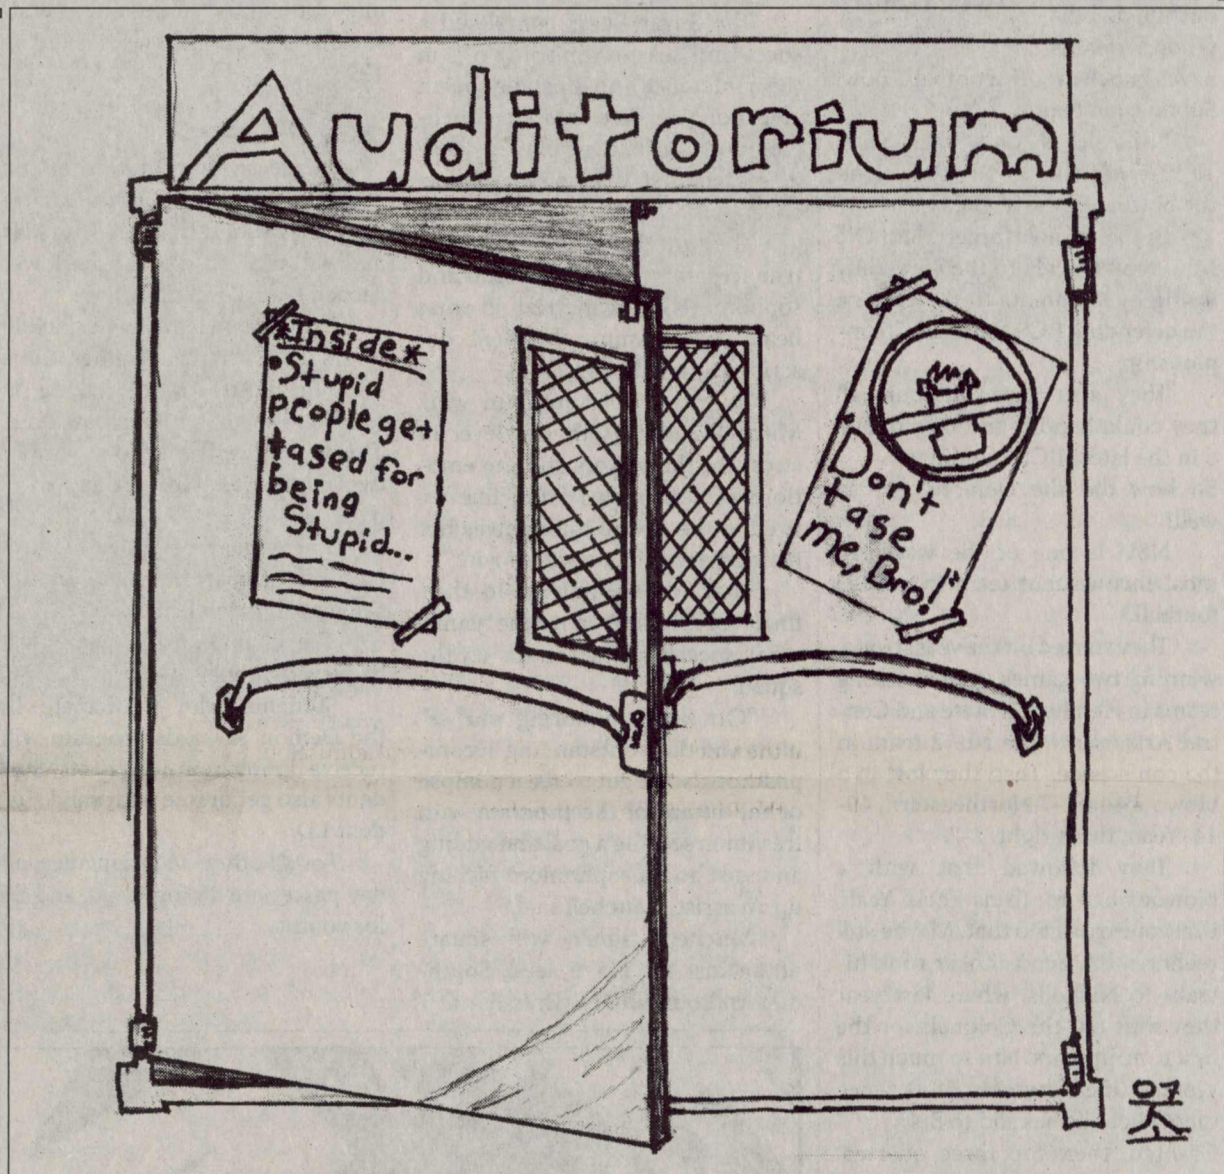 Auditorium
*Inside*
•Stupid
people get
tased for
being
Stupid...
Don't
tase
me, Bro!"
07